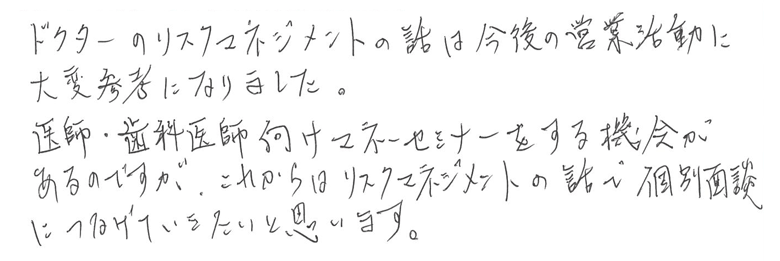 ドクターのリスクマネジメントの話は今後の営業活動に
大変参考になりました。
医師・歯科医師向けマネーセミナーをする機会が
あるのですが、これからはリスクマネジメントの話で個別面談
につなげていきたいと思います。